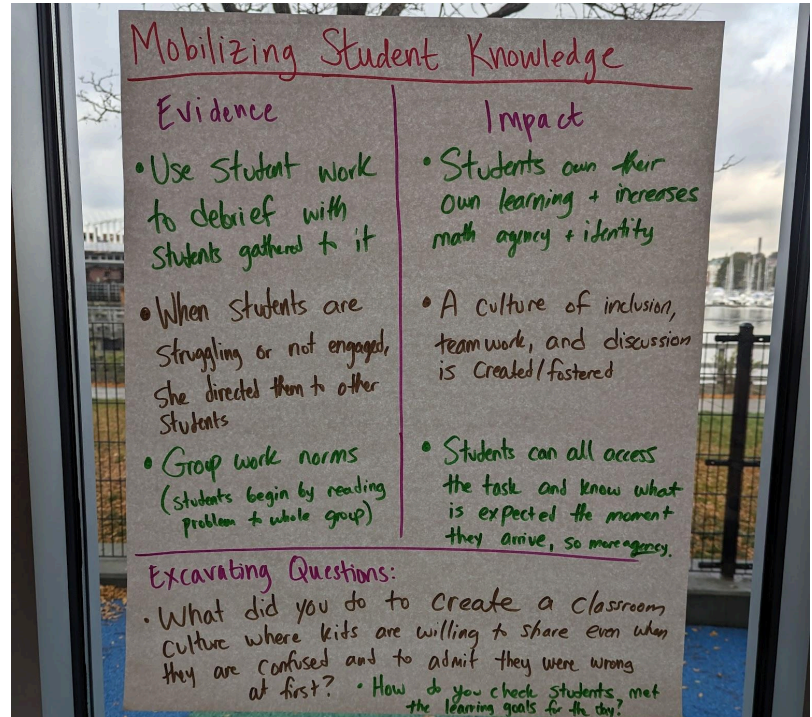 Mobilizing Student Knowledge
Evidence
• Use Student work
to debrief with
students gathered to it
• When students are
struggling or not engaged,
she directed them to other
students
• Group work norms
(students begin by reading
problem to whole group)
Impact
• Students own their
own learning + increases
math agency + identity
• A culture of inclusion,
teamwork, and discussion
is created/fostered
• Students can all access
the task and know what
is expected the moment
they arrive, so more agency.
Excavating Questions:
• What did you do to create a classroom
culture where kids are willing to share even when
they are confused and to admit they were wrong
at first?
• How do you check students met
the learning goals for the day?